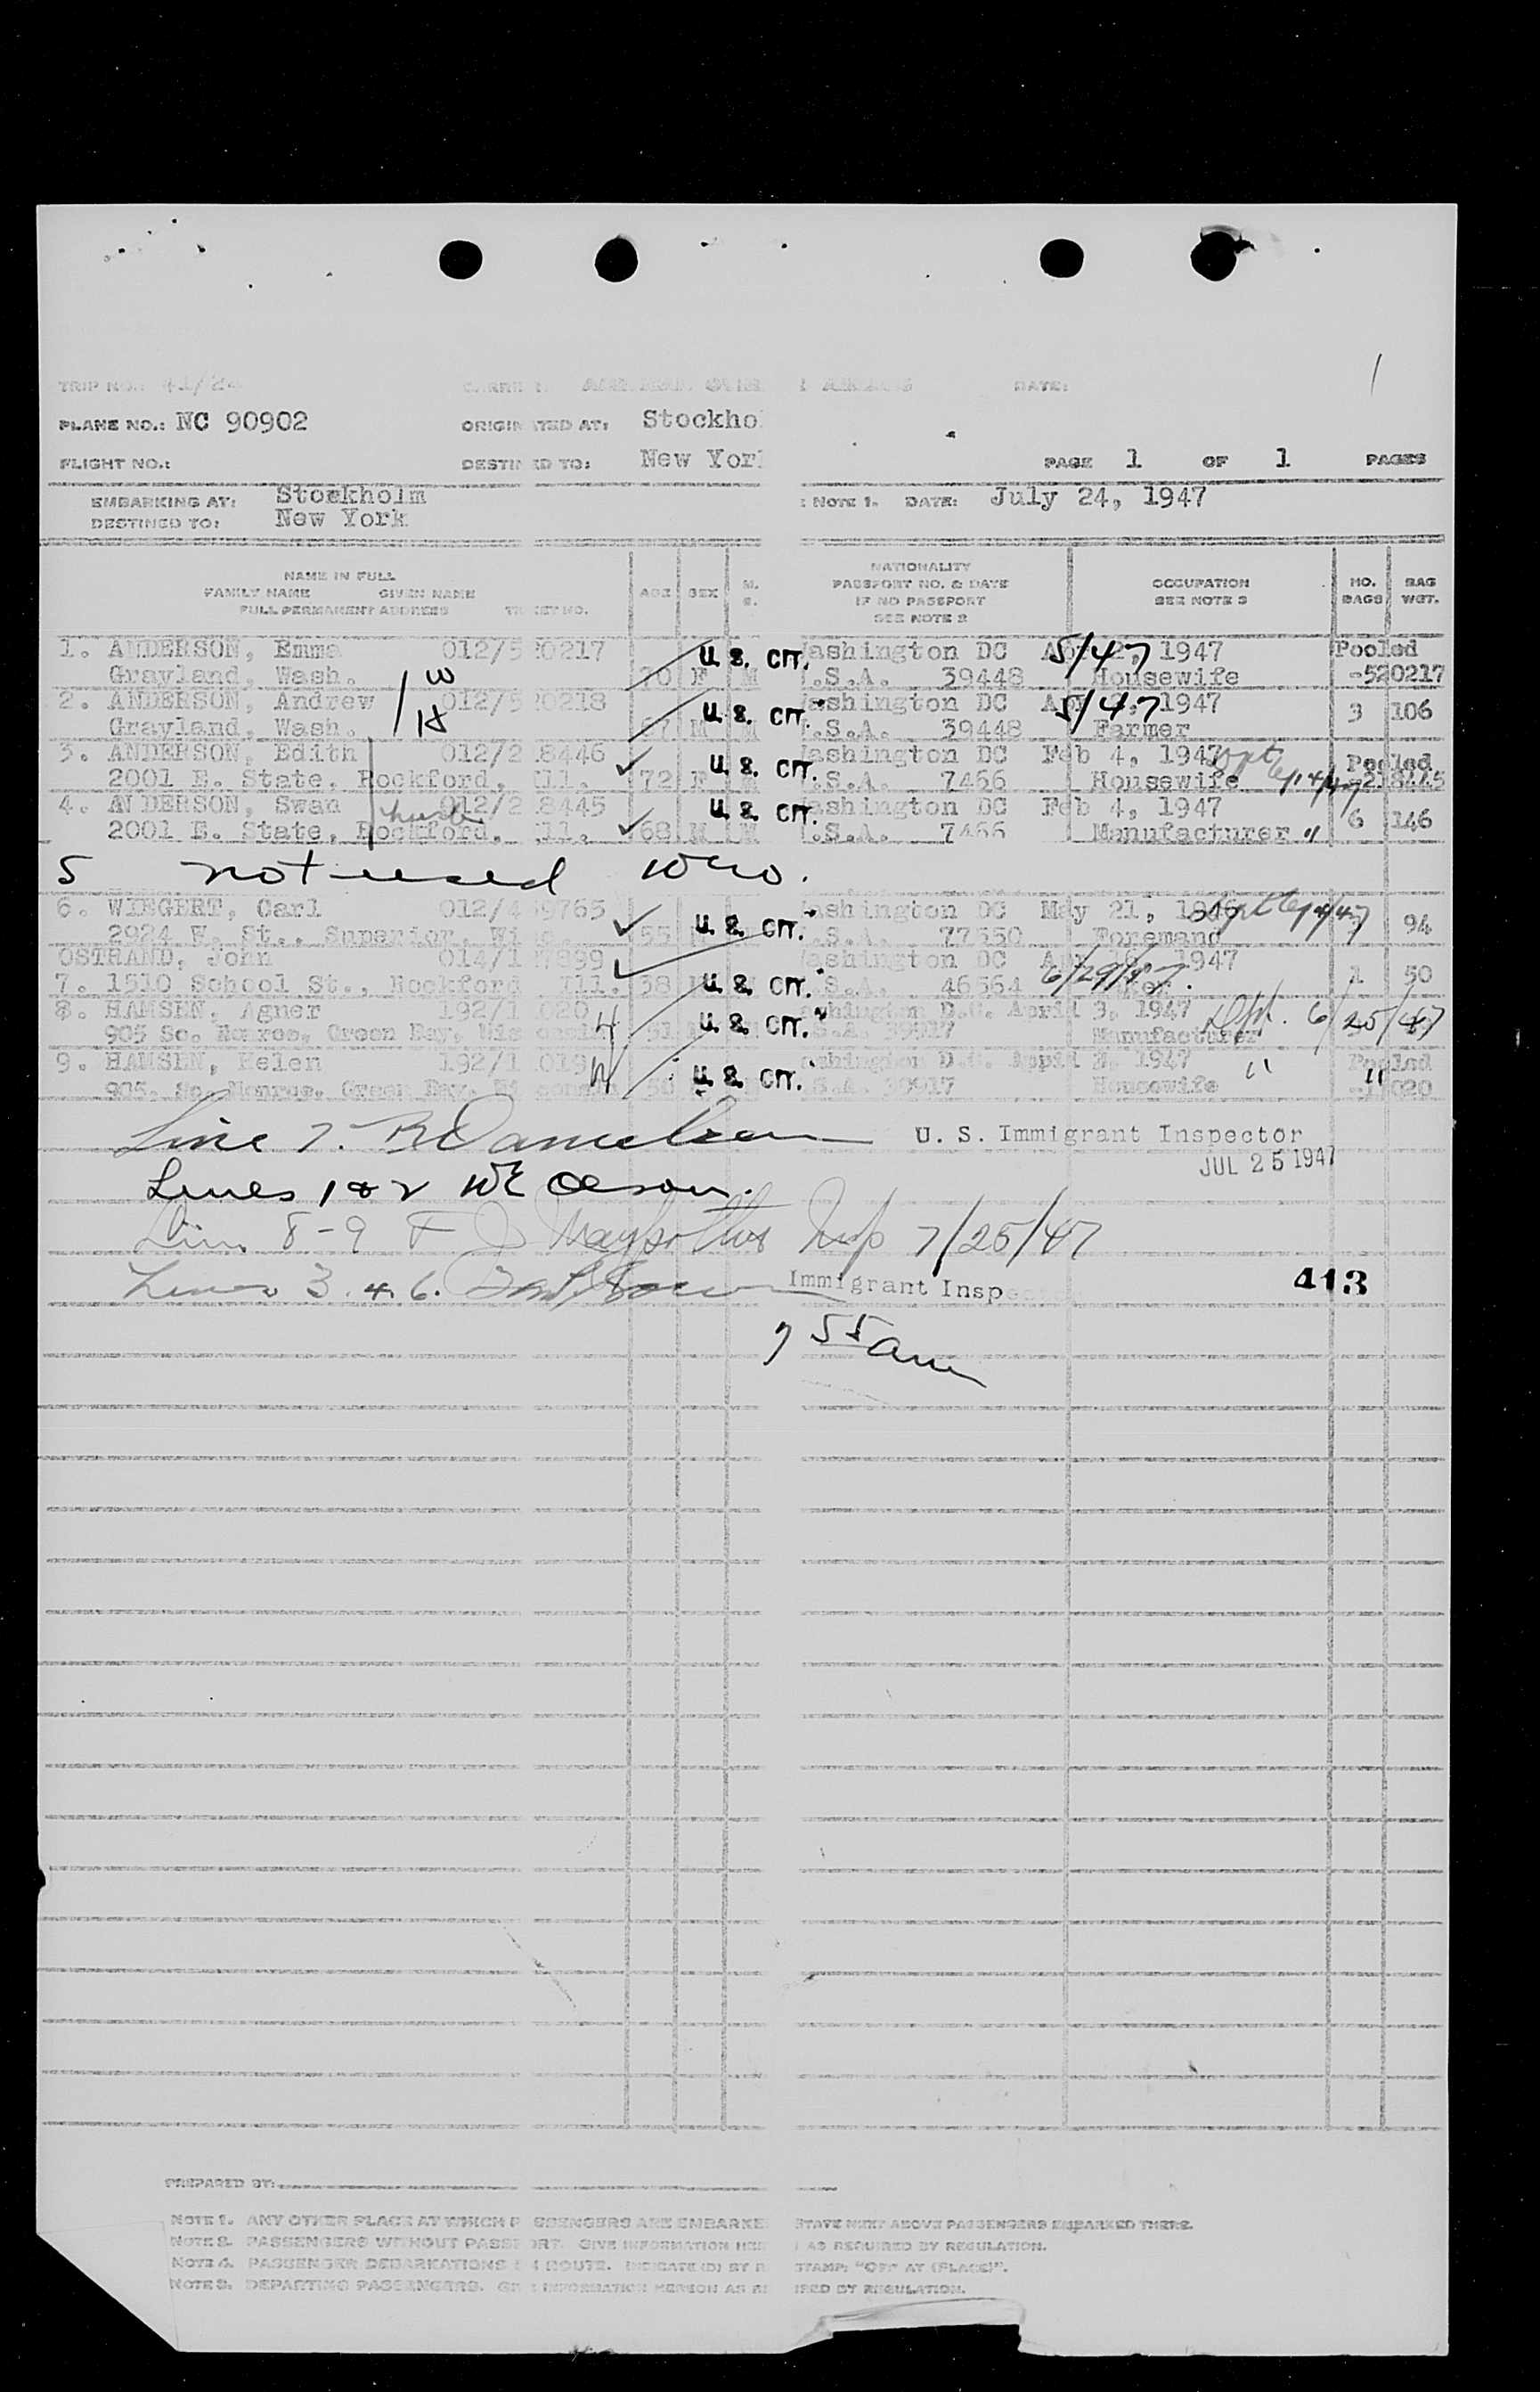 1
TRIP NO.: 41/24
DATE:
PLANE NO.: NC 90902 ORIGIN TED AT: Stockho
FLIGHT NO.: DESTIN ED TO: New Yor PAGE 1 OF 1 PAGES
EMBARKING AT: Stockholm NOTE 1. DATE: July 24, 1947
DESTINED TO: New York
NAME IN FULL NATIONALITY
FAMILY NAME GIVEN NAME AGE SEX M. PASSPORT NO. & DATE OCCUPATION NO. BAG
FULL PERMANENT ADDRESS S. IF NO PASSPORT SEE NOTE 3 BAGS WGT.
SEE NOTE 2
1. ANDERSON, Emma 012/5 20217 U. S. CIT. ashington DC 5/47 1947 Pooled
Grayland, Wash. W 70 F M .S.A. 39448 Housewife -520217
2. ANDERSON, Andrew 012/5 20218 U. S. CIT. ashington DC 5/47 1947 3 106
Grayland, Wash. H 67 M M .S.A. 39448 Farmer
3. ANDERSON, Edith 012/2 8446 U. S. CIT. ashington DC Feb 4, 1947 Pooled
2001 E. State, Rockford, Ill. 72 F M .S.A. 7466 Housewife -218445
4. ANDERSON, Swan 012/2 8445 U. S. CIT. ashington DC Feb 4, 1947 6 146
2001 E. State, Rockford, Ill. 68 M M .S.A. 7466 Manufacturer "
5 not used
6. WIEGERT, Carl 012/4 9765 U. S. CIT. ashington DC May 21, 1946 94
2924 F. St., Superior, Wi 55 .S.A. 77550 Foremand
OSTRAND, John 014/1 7899 ashington DC 1947
7. 1510 School St., Rockford Ill. 38 U. S. CIT. .S.A. 46364 6/29/47. 1 50
8. HANSEN, Agner 192/1 020 U. S. CIT. ashington D.C. April 3, 1947 6/25/47
905 So. Monroe, Green Bay, Wis 51 S.A. 30917 Manufacturer
9. HANSEN, Helen 192/1 019 U. S. CIT. ashington D.C. April 3, 1947 " Pooled
905. So. Monroe, Green Bay, Wi S.A. 30917 Housewife " 020
Line 7. U. S. Immigrant Inspector
JUL 25 1947
Lines 1 & 2 Olson.
Lin. 8-9 Insp 7/25/47
Lines 3. 4. 6. Immigrant Insp 413
7 55 am
PREPARED BY:
NOTE 1. ANY OTHER PLACE AT WHICH P SSENGERS ARE EMBARKE STATE NEXT ABOVE PASSENGERS EMBARKED THERE.
NOTE 2. PASSENGERS WITHOUT PASSP ORT. GIVE INFORMATION HER AS REQUIRED BY REGULATION.
NOTE 4. PASSENGER DEBARKATIONS E N ROUTE. INDICATE (D) BY R STAMP: "OFF AT (PLACE)".
NOTE 3. DEPARTING PASSENGERS. GI INFORMATION HEREON AS R IRED BY REGULATION.